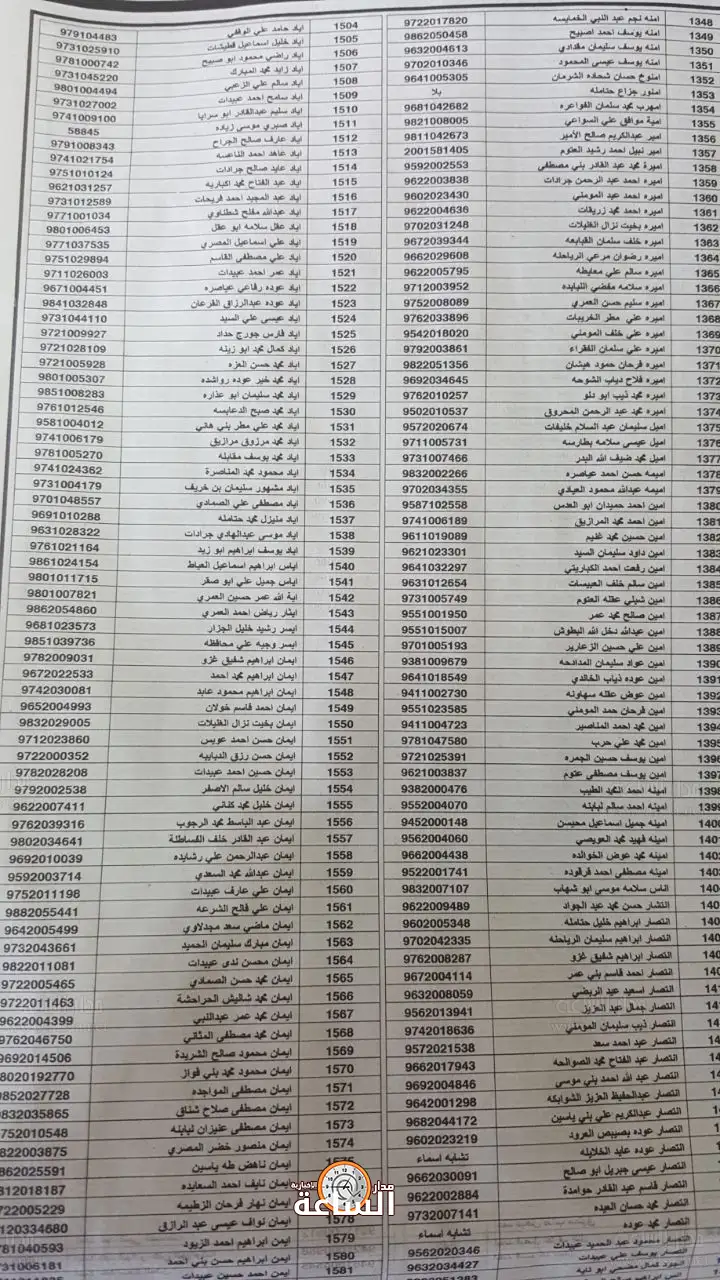 1348 امنه نجم عبد النبي الخمايسه 9722017820
1349 امنه يوسف احمد اصبيح 9862050458
1350 امنه يوسف سليمان مقدادي 9632004613
1351 امنه يوسف عيسى المحمود 9702010346
1352 امنوخ حسان شحاده الشرمان 9641005305
1353 امنور جزاع حتامله بلا
1354 امهرب محمد سلمان الفواعره 9681042682
1355 امية موافق علي السواعي 9821008005
1356 امير عبدالكريم صالح الأمير 9811042673
1357 امير نبيل احمد رشيد العتوم 2001581405
1358 اميرة محمد عبد القادر بني مصطفى 9592002553
1359 اميره احمد عبد الرحمن جرادات 9622003838
1360 اميره احمد عيد المومني 9602023430
1361 اميره احمد محمد زريقات 9622004636
1362 اميره بخيت نزال الغليلات 9702031248
1363 اميره خلف سلمان القبابعه 9672039344
1364 اميره رضوان مرعي الرباحله 9662029608
1365 اميره سالم علي معايطه 9622005795
1366 اميره سلامه مفضي اللبابده 9712003952
1367 اميره سليم حسن العمري 9752008089
1368 اميره علي مطر الخريبات 9762033896
اميره علي خلف المومني 9542018020
1370 اميره علي سلمان الفقراء 9792003861
1371 اميره فرحان حمود هيشان 9822051356
1372 اميره فلاح دياب الشوحه 9692034645
1373 اميره محمد ذيب ابو دلو 9762010257
1374 اميره محمد عبد الرحمن المحروق 9502010537
1375 اميل سليمان عبد السلام خليفات 9572020674
اميل عيسى سلامه بطارسه 9711005731
1377 اميل محمد ضيف الله البدر 9731007466
1378 اميمه حسن احمد عياصره 9832002266
1379 اميمه عبدالله محمود العبادي 9702034355
1380 امين احمد حميدان ابو العدس 9587102558
امين احمد محمد المرازيق 9741006189
1382 امين حسين محمد غنيم 9611019089
امين داود سليمان السيد 9621023301
1384 امين رفعت احمد الكباريتي 9641032297
1385 امين سالم خلف العبيسات 9631012654
1386 امين شبلي عقله العتوم 9731005749
1387 امين صالح محمد عمر 9551001950
امين عبدالله دخل الله البطوش 9551015007
1389 امين علي حسين الزعارير 9701005193
1390 امين عواد سليمان المدادحه 9381009679
1391 امين عوده ذياب الخالدي 9641018549
1392 امين عوض عقله سهاونه 9411002730
امين فرحان حمد المومني 9551023585
امين محمد احمد المناصير 9411004723
امين محمد علي حرب 9781047580
امين يوسف حسين الجمره 9721025391
امين يوسف مصطفى عتوم 9621003837
امينه احمد محمد الطيب 9382000476
امينه احمد سالم لبابنه 9552004070
امينه جميل اسماعيل محيسن 9452000148
امينه فهيد محمد العويضي 9562004060
امينه محمد عوض الخوالده 9662004438
امينه مصطفى احمد قرقوده 9522001741
اناس سلامه موسى ابو شهاب 9832007107
انتشار حسن محمد عبد الجواد 9622009489
انتصار ابراهيم خليل حتامله 9602005348
انتصار ابراهيم سليمان الرباحنه 9702042335
انتصار ابراهيم شفيق غزو 9762008287
انتصار احمد قاسم بني عمر 9672004114
انتصار اسعيد عبد الربضي 9632008059
انتصار جمال عبد العزيز 9562013941
انتصار ذيب سليمان المومني 9742018636
انتصار عبد احمد سعد 9572021538
انتصار عبد الفتاح محمد الصوالحه 9662017943
انتصار عبد الله احمد بني موسى 9692004846
انتصار عبدالحفيظ العزيز الشوابكه 9642001298
انتصار عبدالكريم علي بني ياسين 9682044172
انتصار عوده بصبيص العرود 9602023219
انتصار عوده عايد الخلايله تشابه اسماء
انتصار عيسى جبريل ابو صالح 9662030091
انتصار قاسم عبد القادر حوامدة 9622002884
انتصار محمد حسان العبده 9732007141
انتصار محمد عوده تشابه اسماء
انتصار محمود عبد الحميد عبيدات 9562020346
انتصار يوسف علي عبيدات 9632034427
1504 اياد حامد علي الوقفي 979104483
1505 اياد خليل اسماعيل قطيشات 9731025910
1506 اياد راضي محمود ابو صبيح 9781000742
1507 اياد زايد محمد المبارك 9731045220
1508 اياد سالم علي الزعبي 9801004494
1509 اياد سامح احمد عبيدات 9731027002
1510 اياد سليم عبدالقادر ابو سرايا 9741009100
1511 اياد صبري موسى زياده 58845
1512 اياد عارف صالح الجراح 9791008343
1513 اياد عاهد احمد الناعسه 9741021754
1514 اياد عايد صالح جرادات 9751010124
1515 اياد عبد الفتاح محمد اكباريه 9621031257
1516 اياد عبد المجيد احمد فريحات 9731012589
1517 اياد عبدالله مفلح شطناوي 9771001034
1518 اياد عقل سلامه ابو عقل 9801006453
1519 اياد علي اسماعيل المصري 9771037535
1520 اياد علي مصطفى القاسم 9751029894
1521 اياد عمر احمد عبيدات 9711026003
1522 اياد عوده رفاعي عياصره 9671004451
1523 اياد عوده عبدالرزاق القرعان 9841032848
1524 اياد عيسى علي السيد 9731044110
1525 اياد فارس جورج حداد 9721009927
1526 اياد كمال محمد ابو زينه 9721028109
1527 اياد محمد حسن العزه 9721005928
1528 اياد محمد خير عوده رواشده 9801005307
1529 اياد محمد سليمان ابو عذاره 9851008283
1530 اياد محمد صبح الدعايسه 9761012546
1531 اياد محمد علي مطر بني هاني 9581004012
1532 اياد محمد مرزوق مرازيق 9741006179
1533 اياد محمد يوسف مقابله 9781005270
1534 اياد محمود محمد المناصرة 9741024362
1535 اياد مشهور سليمان بن خريف 9731004179
1536 اياد مصطفى علي الصمادي 9701048557
1537 اياد منيزل محمد حتامله 9691010288
1538 اياد موسى عبدالهادي جرادات 9631028322
1539 اياد يوسف ابراهيم ابو زيد 9761021164
1540 اياس ابراهيم اسماعيل العياط 9861024154
1541 اياس جميل علي ابو صقر 9801011715
1542 اية الله عمر حسين العمري 9801007821
1543 ايثار رياض احمد العمري 9862054860
1544 ايسر رشيد خليل الجزار 9681023573
1545 ايسر وجيه علي محافظه 9851039736
1546 ايمان ابراهيم شفيق غزو 9782009031
1547 ايمان ابراهيم محمد احمد 9672022533
1548 ايمان ابراهيم محمود عابد 9742030081
1549 ايمان احمد قاسم خولان 9652004993
1550 ايمان بخيت نزال الغليلات 9832029005
1551 ايمان حسن احمد عويس 9712023860
1552 ايمان حسن رزق الدبايبه 9722000352
1553 ايمان حسين احمد عبيدات 9782028208
1554 ايمان خليل سالم الاصفر 9792002538
1555 ايمان خليل محمد كناني 9622007411
1556 ايمان عبد الباسط محمد الرجوب 9762039316
1557 ايمان عبد القادر خلف القساطلة 9802034641
1558 ايمان عبدالرحمن علي رشايده 9692010039
1559 ايمان عبدالله محمد السعدي 9592003714
1560 ايمان علي عارف عبيدات 9752011198
1561 ايمان علي فالح الشرعه 9882055441
1562 ايمان ماضي سعد مجدلاوي 9642005499
1563 ايمان مبارك سليمان الحميد 9732043661
1564 ايمان محسن ندى عبيدات 9822011081
1565 ايمان محمد حسن الصمادي 9722005465
1566 ايمان محمد شاليش الحراحشة 9722011463
1567 ايمان محمد عمر عبداللنبي 9622004399
1568 ايمان محمد مصطفى المثاني 9762046750
1569 ايمان محمود صالح الشريدة 9692014506
1570 ايمان محمود محمد بني فواز 8020192770
1571 ايمان مصطفى المواجده 9852027728
1572 ايمان مصطفى صلاح شناق 832035865
1573 ايمان مصطفى عنيزان لبابنه 752010548
1574 ايمان منصور خضر المصري 822003875
ايمان ناهض طه ياسين 862025591
ايمان نايف احمد السعايده 812018187
ايمان نهار فرحان الزطيمه 722005229
1578 ايمان نواف عيسى عبد الرازق 120334680
1579 ايمن ابراهيم احمد الزيود 781040593
1580 ايمن ابراهيم حسن بني احمد 731006181
1581 ايمن احمد حسين عبيدات
مدار الساعة
الاخبارية